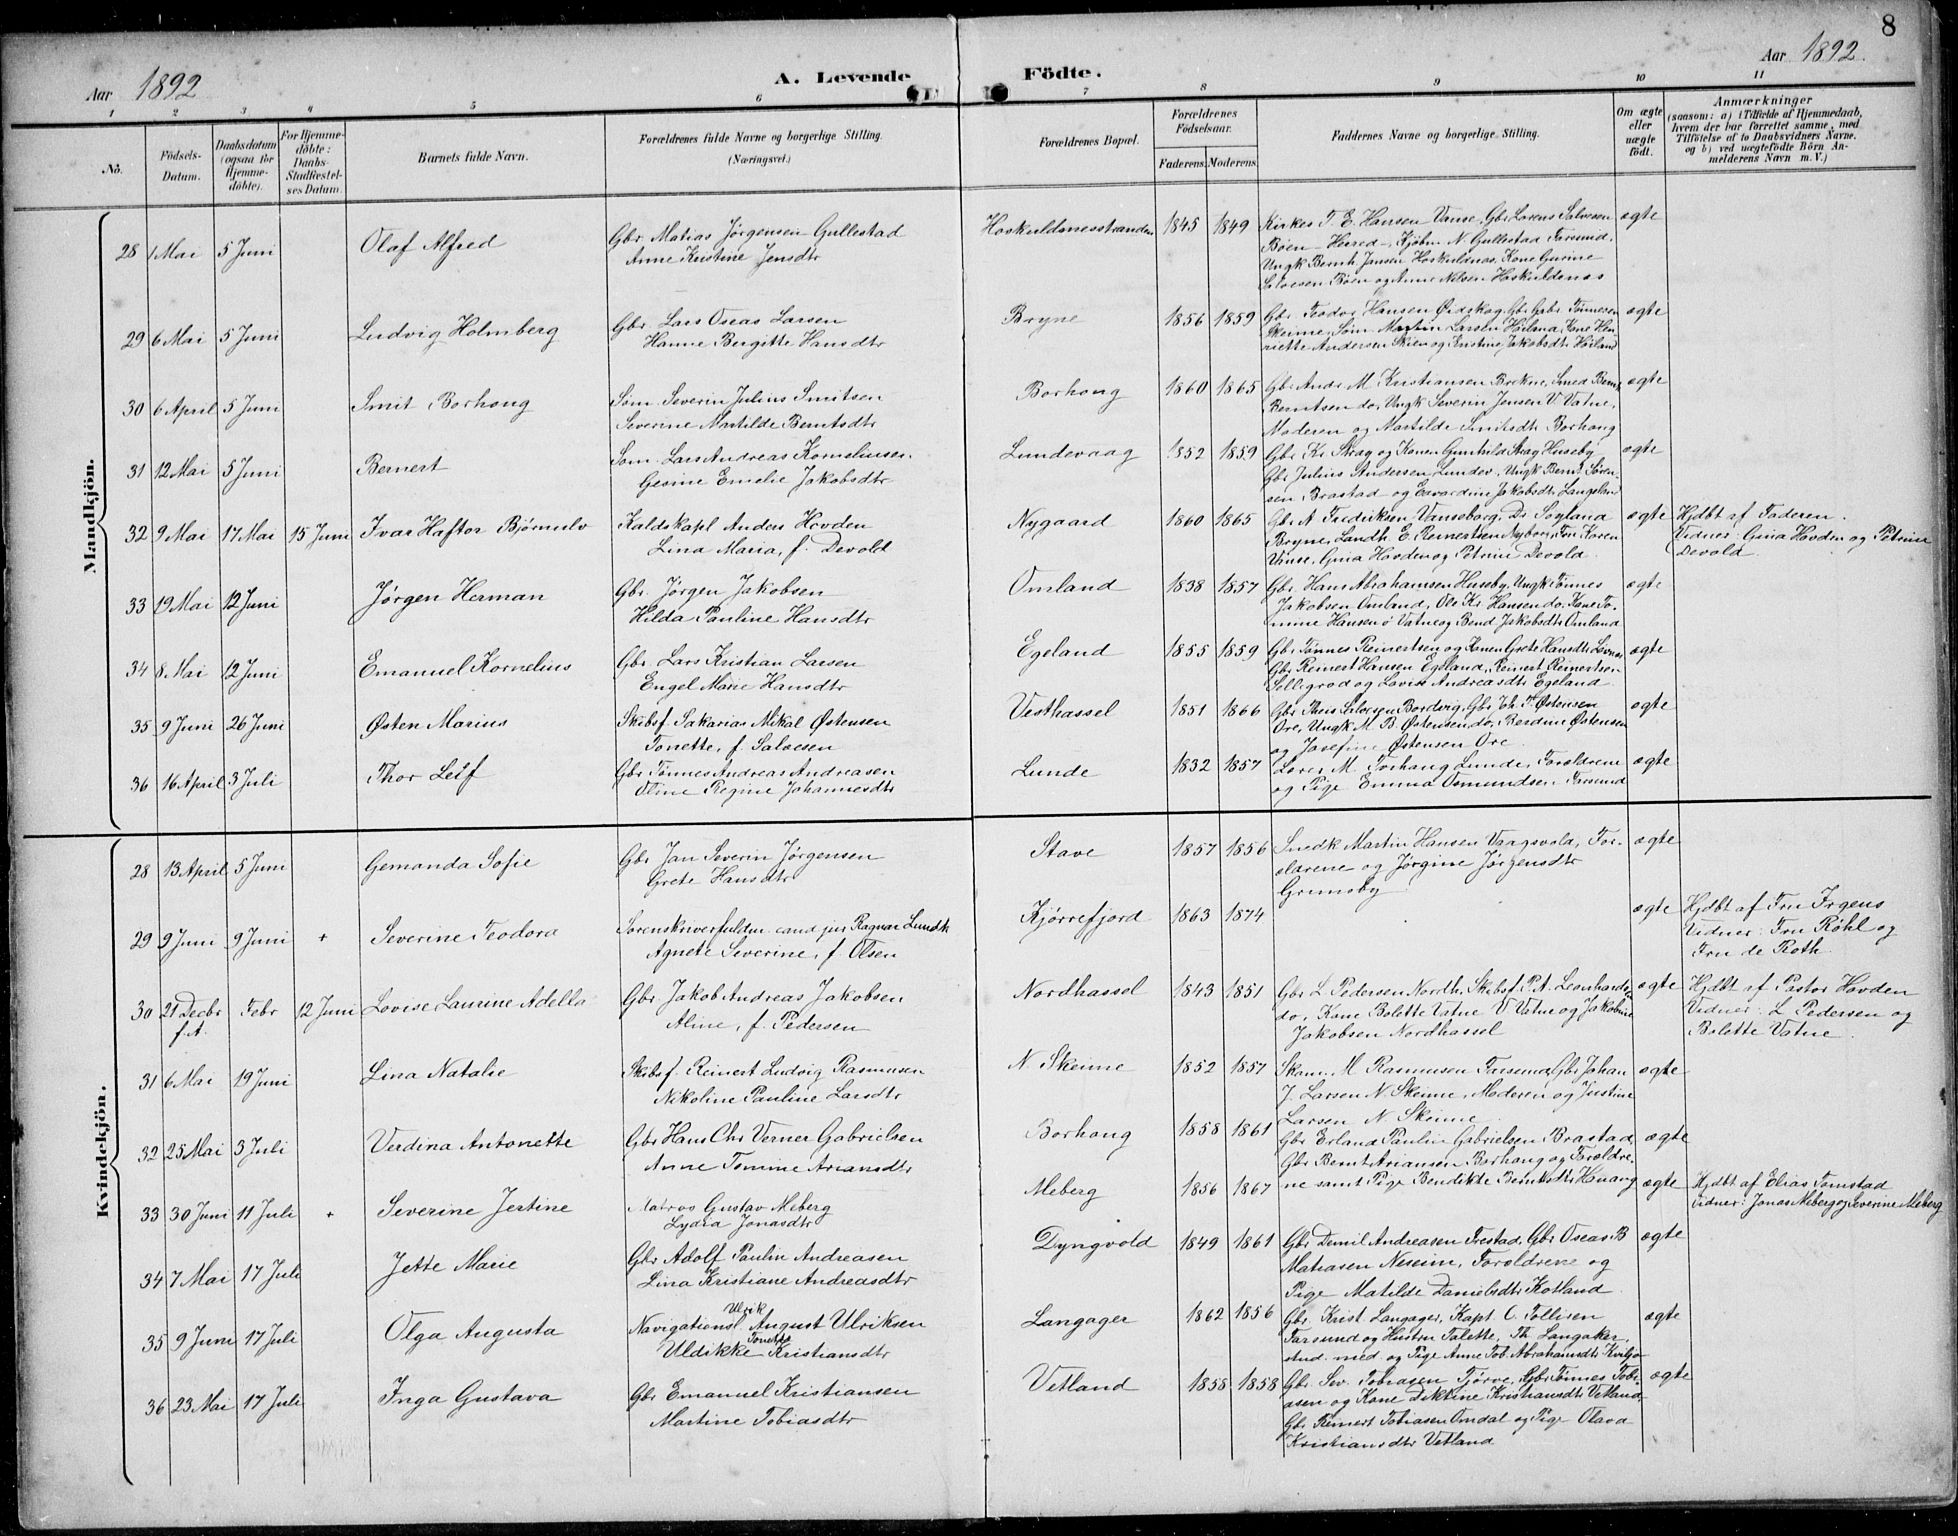 8
Aar 1892
A. Levende Födte.
Aar 1892.
1 2 3 4 5 6 7 8 9 10 11
No.
Födsels-Datum.
Daabsdatum (ogsaa for Hjemme-döbte).
For Hjemme-döbte: Daabs-Stadfæstel-ses Datum.
Barnets fulde Navn.
Forældrenes fulde Navne og borgerlige Stilling. (Næringsvei.)
Forældrenes Bopæl.
Forældrenes Födselsaar.
Faderens. Moderens.
Faddernes Navne og borgerlige Stilling.
Om ægte eller uægte födt.
Anmærkninger
(saasom: a) i Tilfælde af Hjemmedaab, hvem der har forrettet samme, med Tilföielse af to Daabsvidners Navne, og b) ved uægtefödte Börn An-melderens Navn m. V.)
Mandkjön.
28 1 Mai 5 Juni Olaf Alfred Gbr Matias Jørgensen Gullestad
Anne Kristine Jensdtr
Hoskuldsnesstranden 1845 1849 Kirkes T. E. Hansen Vanse, Gbr Lorens Salvesen ægte
Bøen - Herred -, Kjøbm N Gullestad Farsund,
Ungk Bernh Jansen Hoskuldsnes, Kone Gurine
Salvesen Bøen og Anne Nilsen Hoskuldsnes
29 6 Mai 5 Juni Ludvig Holmberg Gbr Lars Oseas Larsen
Hanne Bergitte Hansdtr
Bryne 1856 1859 Gbr Teodor Hansen Ørdskog, Gbr Gabr Tønnesen ægte
Skeime, Søm. Martin Larsen Høiland, Kone Hen-
riette Andersen Skien og Kristine Jakobsdtr Høiland
30 6 April 5 Juni Smit Borhong Søm. Severin Julius Smitsen
Severine Martilde Berntsdtr
Borhong 1860 1865 Gbr Andr M Kristiansen Brekne, Smed Bernt ægte
Berntsen do, Ungk Severin Jensen V. Vatne,
Moderen og Martilde Smitsdtr Borhong
31 12 Mai 5 Juni Bernert Søm. Lars Andreas Korneliusen
Gesine Emelie Jakobsdtr
Lundevaag 1852 1859 Gbr Kr Skrag og Konen Gunhild Skrag Huseby ægte
Gbr Julius Andersen Lundev, Ungk Bernt Søren-
sen Brastad og Edvardine Jakobsdtr Langeland
32 9 Mai 17 Mai 15 Juni Ivar Haftor Bjørnulv Kaldskapl Anders Hovden
Lina Maria, f. Devold
Nygaard 1860 1865 Gbr A Fredriksen Vanseborg, Dr Søyland ægte Hjdbt af Faderen.
Bryne, Landh. E. Reinertsen Nyborg, Frk Karen
Vanse, Gina Hovden og Petrine Devold
Vidner: Gina Hovden og Petrine Devold
33 19 Mai 12 Juni Jørgen Herman Gbr. Jørgen Jakobsen
Hilda Pauline Hansdtr
Omland 1838 1857 Gbr Hans Abrahamsen Huseby, Ungk Tønnes ægte
Jakobsen Omland, Ole Kr Hansen do, Kone To-
mine Hansen Ø Vatne og Bend Jakobsdtr Omland
34 8 Mai 12 Juni Emanuel Kornelius Gbr. Lars Kristian Larsen
Engel Marie Hansdtr
Egeland 1855 1859 Gbr Tønnes Reinertsen og Konen Grete Hansdtr ægte
Gbr Reinert Hansen Egeland, Reinert Reinertsen
Selligrod og Lovise Andreasdtr Egeland
35 9 Juni 26 Juni Østen Marius Skibsf. Sakarias Mikal Østensen
Tonette, f. Salvesen
Vesthassel 1851 1866 Gbr Theis Salvesen Bordvig, Gbr Joh. T. Østensen ægte
Ore, Ungk M. B. Østensen do, Berdine Østensen
og Josefine Østensen Ore
36 16 April 3 Juli Thor Leif Gbr Tønnes Andreas Andreasen
Oline Regine Johannesdtr
Lunde 1832 1857 Lærer M. Torhaug Lunde, Forældrene ægte
og Pige Emma Osmundsen Farsund
Kvindekjön.
28 13 April 5 Juni Gemanda Sofie Gbr Jan Severin Jørgensen
Grete Hansdtr
Stave 1857 1856 Snedk Martin Hansen Vaagsvold, For- ægte
ældrene og Jørgine Jørgensdtr
Grimsby
29 9 Juni 9 Juni + Severine Teodora Sorenskriverfuldm. cand jur Ragnar Lundh
Agnete Severine, f. Olsen
Kjørrefjord 1863 1874 ægte Hjdbt af Fru Irgens
Vidner: Fru Röhl og
Fru de Roth
30 21 Decbr f.A. Febr 12 Juni Lovise Laurine Adella Gbr. Jakob Andreas Jakobsen
Aline, f. Pedersen
Nordhassel 1843 1851 Gbr L Pedersen Nordh, Skibsf. P. A. Leonhardsen ægte Hjdbt af Pastor Hovden
do, Kone Bolette Vatne V Vatne og Jakobine
Jakobsen Nordhassel
Vidner: L Pedersen og
Bolette Vatne.
31 6 Mai 19 Juni Lina Natalie Skibsf. Reinert Ludvig Rasmusen
Nikoline Pauline Larsdtr
N Skeime 1852 1857 Skom. M Rasmusen Farsund, Gbr Johan ægte
J. Larsen N Skeime, Moderen og Justine
Larsen N Skeime
32 25 Mai 3 Juli Verdina Antonette Gbr Hans Chr Verner Gabrielsen
Anne Tomine Ariansdtr
Borhong 1858 1861 Gbr Erland Paulin Gabrielsen Brastad, ægte
Gbr Bernt Ariansen Borhong og Forældre-
ne samt Pige Bendikte Berntsdtr Hanang
33 30 Juni 11 Juli + Severine Jertine Matros Gustav Meberg
Lydia Jonasdtr
Meberg 1856 1867 ægte Hjdbt af Elias Tomstad
Vidner: Jonas Meberg og Severine Meberg
34 7 Mai 17 Juli Jette Marie Gbr Adolf Paulin Andreasen
Lina Kristiane Andreasdtr
Dyngvold 1849 1861 Gbr Demil Andreasen Frestad, Gbr Oseas B ægte
Matiasen Neseim, Forældrene og
Pige Matilde Danielsdtr Kotland
35 9 Juni 17 Juli Olga Augusta Navigationsl August Ulrik Ulriksen
Uldikke Tonette Kristiansdtr
Langager 1862 1856 Gbr. Krist Langager, Kapt C Tollisen ægte
Farsund og Hustru Talette, Th Langaker,
stud. med og Pige Anne Tob. Abrahamsdtr Kviljo
36 23 Mai 17 Juli Inga Gustava Gbr Emanuel Kristiansen
Martine Tobiasdtr
Vetland 1858 1858 Gbr Sev Tobiasen Tjørve, Gbr Tønnes Tobi- ægte
asen og Kone Diktine Kristiansdtr Vetland,
Gbr Reinert Tobiasen Omdal og Pige Olava
Kristiansdtr Vetland